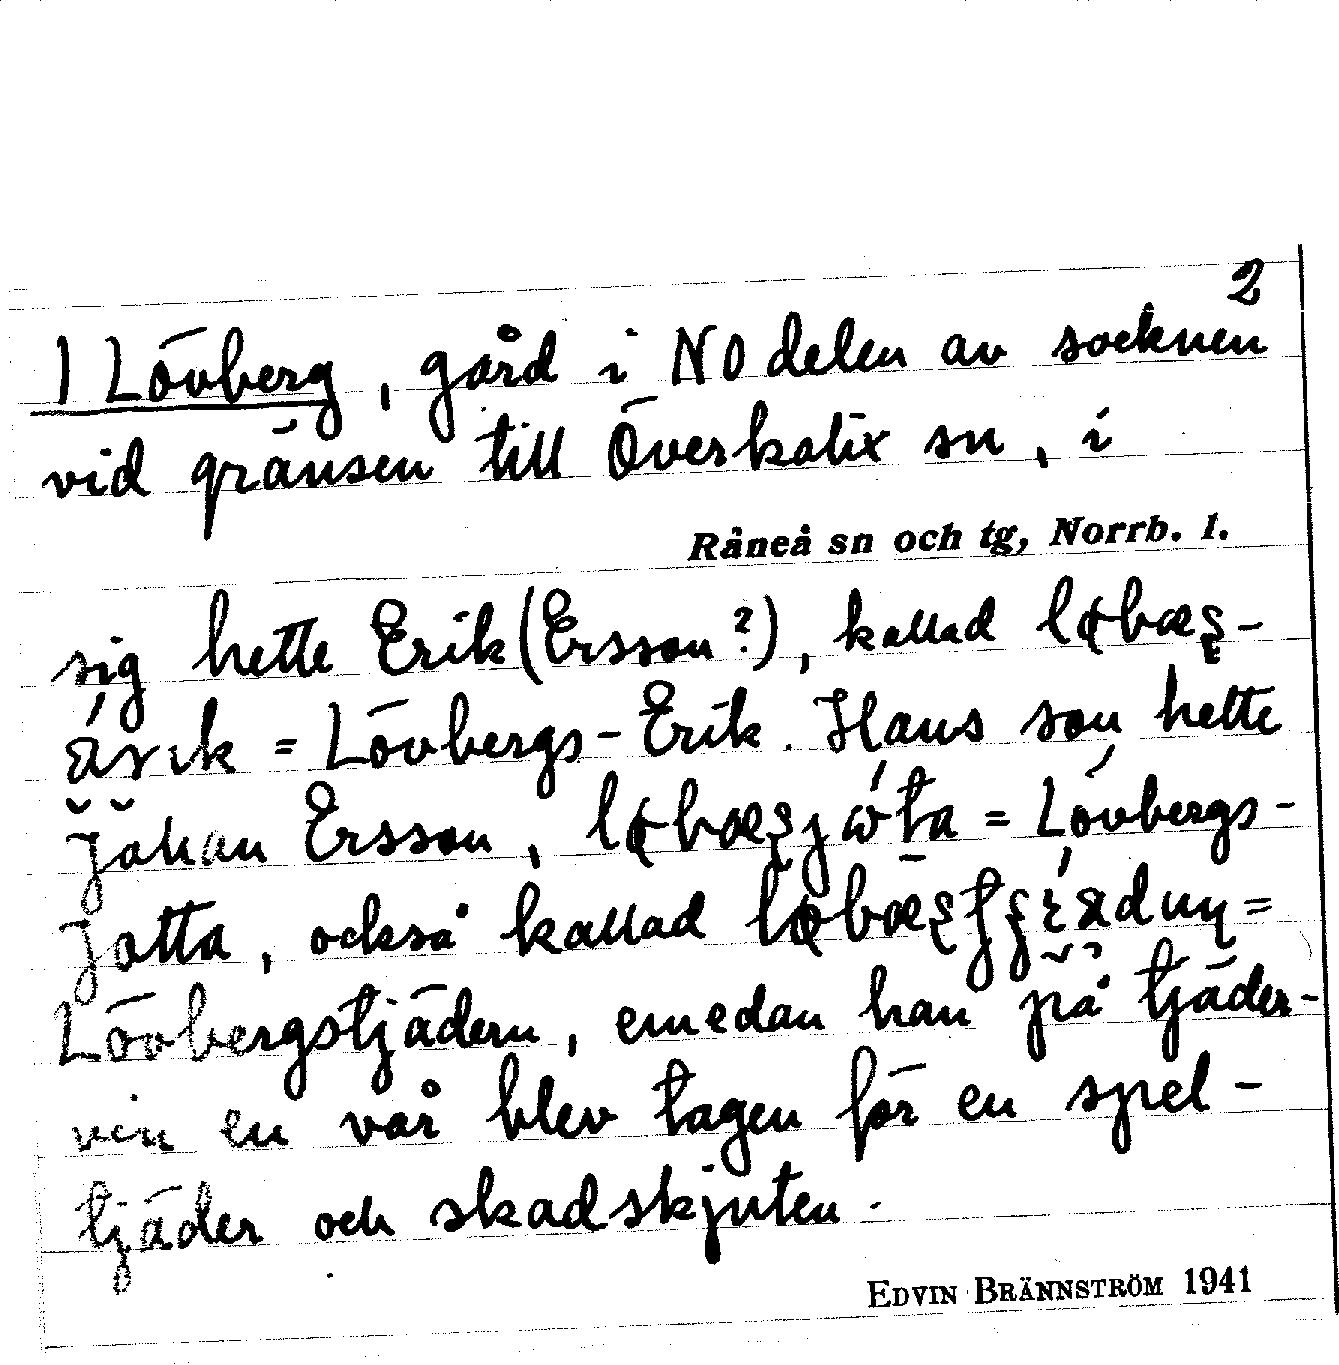 2
I Lövberg, gård i NO delen av socknen
vid gränsen till Överkalix sn, i
Råneå sn och tg, Norrb. l.
sig hette Erik (Ersson?), kallad
= Lövbergs-Erik. Hans son hette
Johan Ersson, = Lövbergs-
Jotta, också kallad =
Lövbergstjädern, emedan han på tjäder-
vin en vår blev tagen för en spel-
tjäder och skadskjuten.
EDVIN BRÄNNSTRÖM 1941